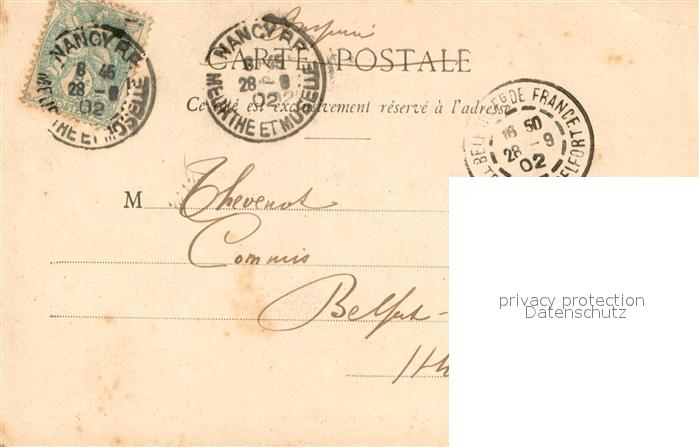 Imprimé
CARTE POSTALE
Ce côté est exclusivement réservé à l'adresse
NANCY R.P.
8 45
28 - 9
02
MEURTHE ET MOSELLE
NANCY R.P.
8 45
28 - 9
02
MEURTHE ET MOSELLE
DE FRANCE
16 50
28 - 9
02
BELFORT
M Thevenot
Commis
Belfort
privacy protection
Datenschutz